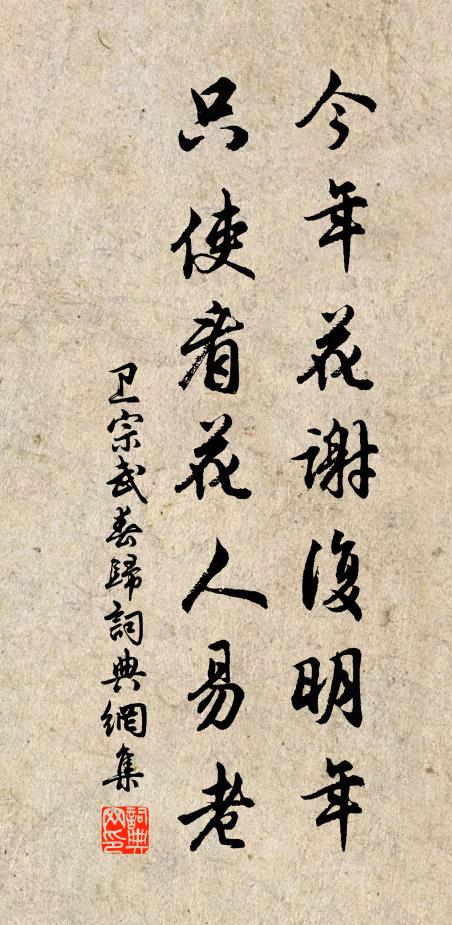 今年花谢復明年
只使看花人易老
卫宗武春歸詞典網集
詞典网印